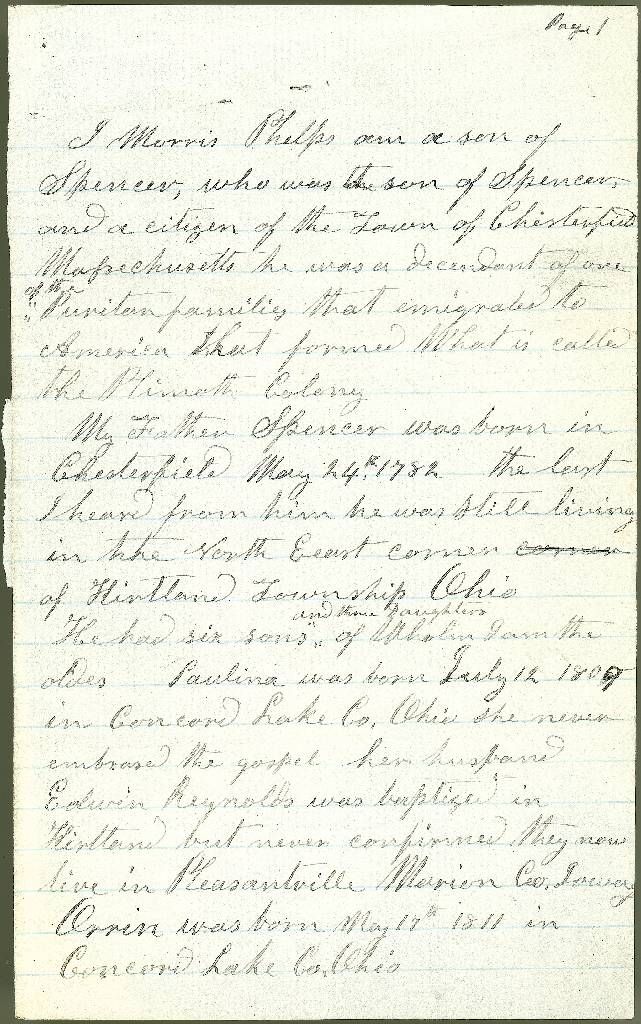 Page 1
I Morris Phelps am a son of
Spencer, who was the son of Spencer,
and a citizen of the Town of Chesterfield
Massechusetts he was a decendant of one
of the
" Puritan families that emigrated to
America that formed What is called
the Plimoth Colony
My Father Spencer was born in
Chesterfield May 24th. 1782 the last
I heard from him he was still living
in the North Eeast corner corner
of Kirtland Township Ohio
and three Daughters
He had six sons " of Wholm I am the
oldes Paulina was born July 12 1809
in Concord Lake Co. Ohio she never
embrased the gospel her husband
Edwin Reynolds was baptized in
Kirtland but never confirmed they now
live in Pleasantville Marion Co.Ioway
Orrin was born May 17th 1811 in
Concord Lake Co. Ohio